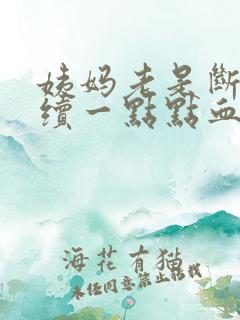 姨妈老是斷
續一點點血
海花有猫
未经同意禁止转载